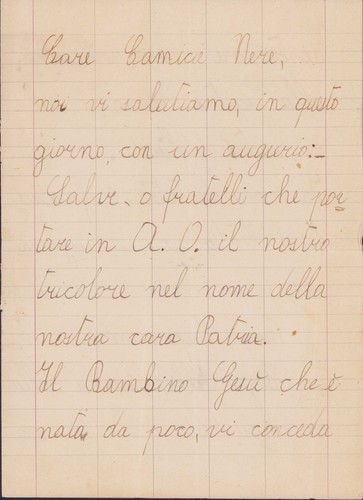 Care Camicie Nere,
noi vi salutiamo, in questo
giorno, con un augurio:-
Salve, o fratelli che por=
tare in A. O. il nostro
tricolore nel nome della
nostra cara Patria.
Il Bambino Gesù che è
nato da poco, vi conceda